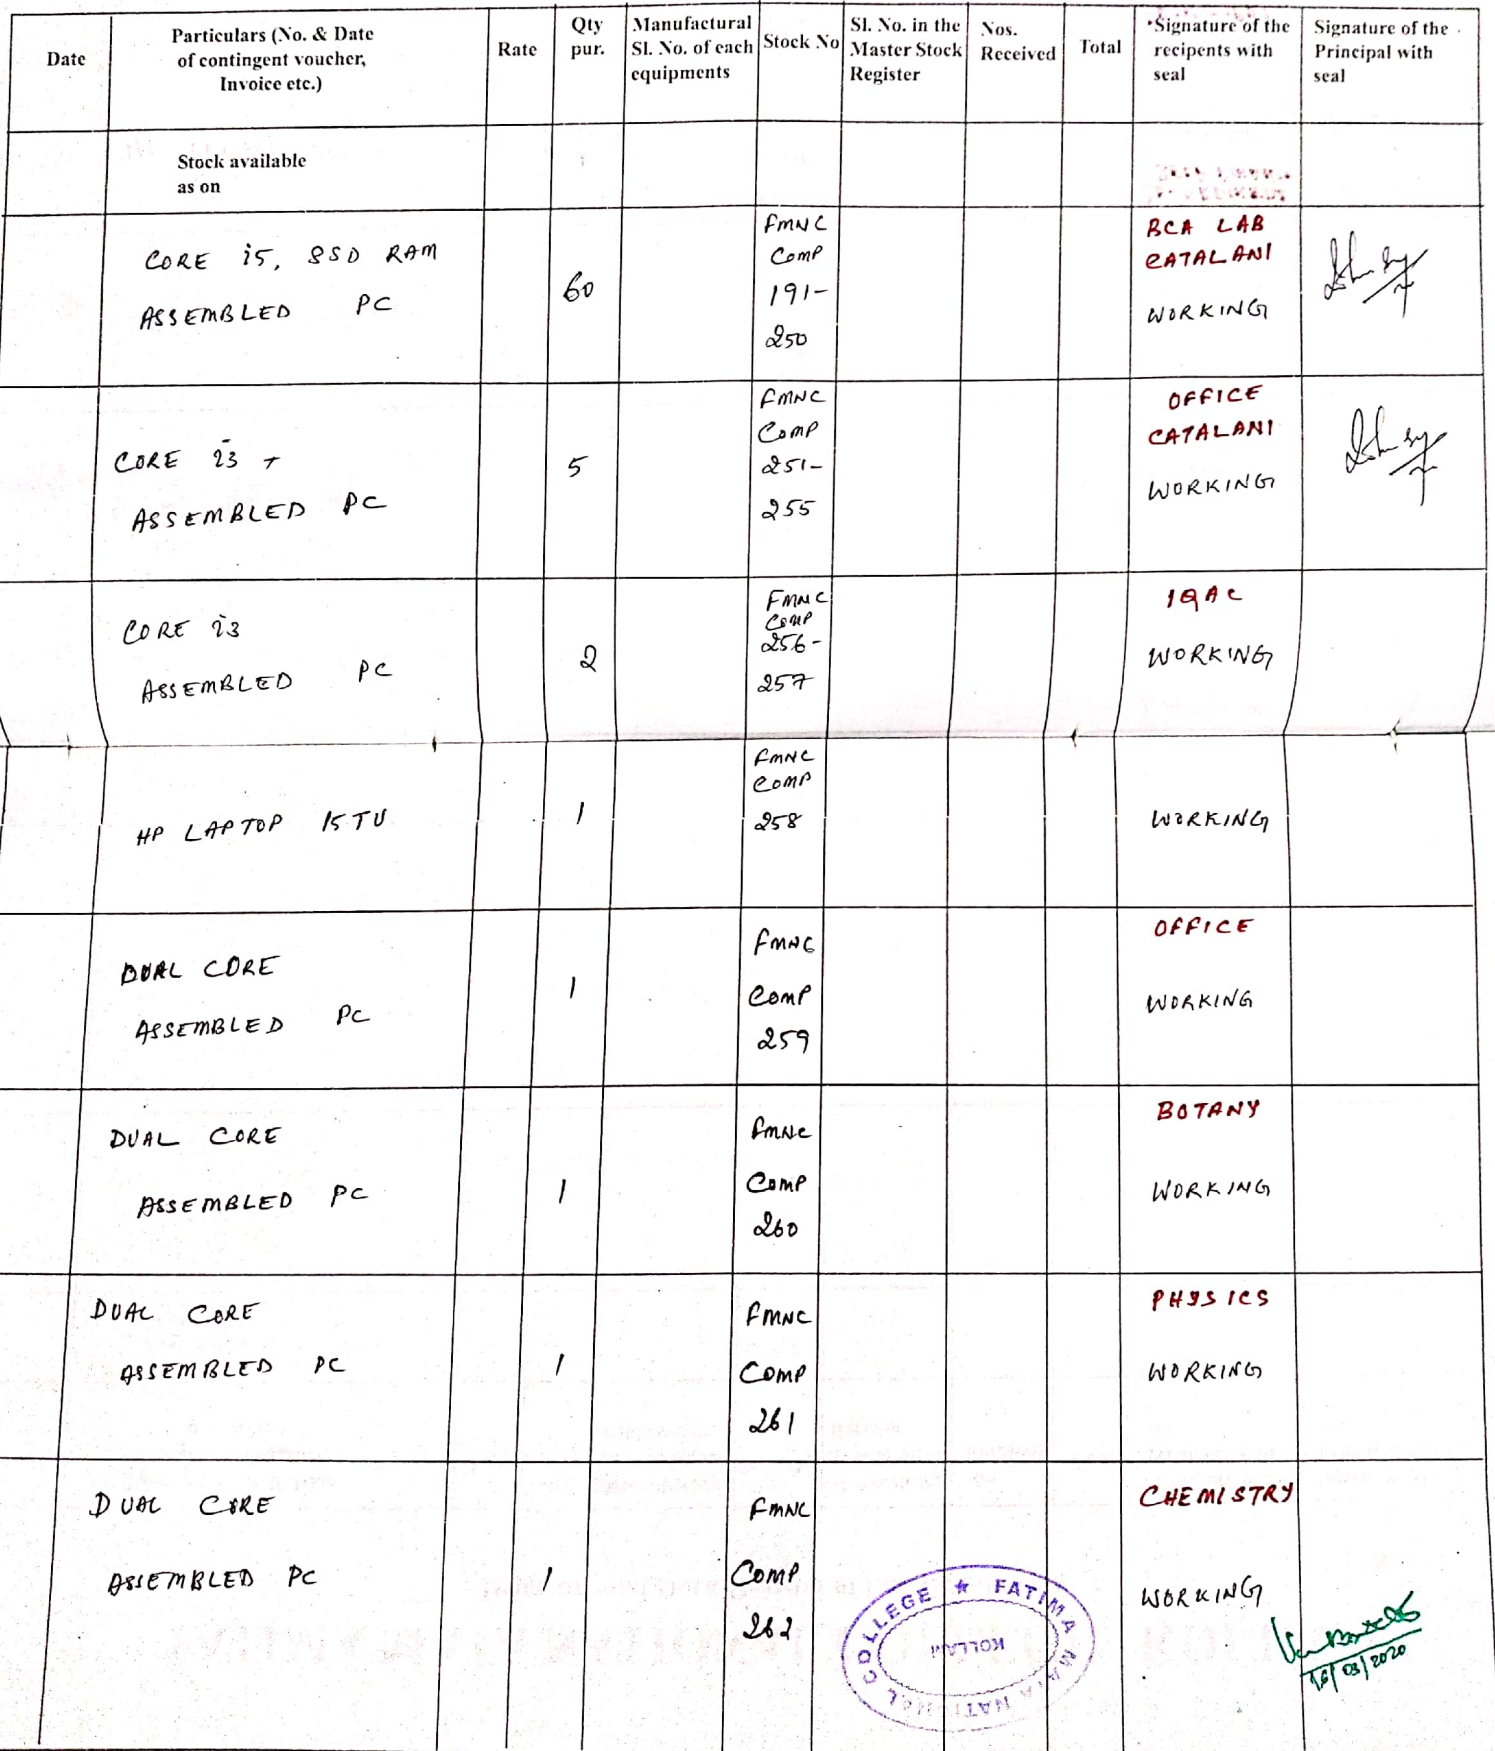 Date
Particulars (No. & Date
of contingent voucher,
Invoice etc.)
Rate
Qty
pur.
Manufactural
Sl. No. of each
equipments
Stock No
Sl. No. in the
Master Stock
Register
Nos.
Received
Total
Signature of the
recipents with
seal
Signature of the
Principal with
seal
Stock available
as on
CORE i5, SSD RAM
ASSEMBLED PC
60
FMNC
COMP
191-
250
BCA LAB
CATALANI
WORKING
CORE i3 +
ASSEMBLED PC
5
FMNC
COMP
251-
255
OFFICE
CATALANI
WORKING
CORE i3
ASSEMBLED PC
2
FMNC
COMP
256-
257
IQAC
WORKING
HP LAPTOP 15TU
1
FMNC
COMP
258
WORKING
DUAL CORE
ASSEMBLED PC
1
FMNC
COMP
259
OFFICE
WORKING
DUAL CORE
ASSEMBLED PC
1
FMNC
COMP
260
BOTANY
WORKING
DUAL CORE
ASSEMBLED PC
1
FMNC
COMP
261
PHYSICS
WORKING
DUAL CORE
ASSEMBLED PC
1
FMNC
COMP
262
CHEMISTRY
WORKING
FATIMA MATA NATIONAL COLLEGE
KOLLAM
16/03/2020